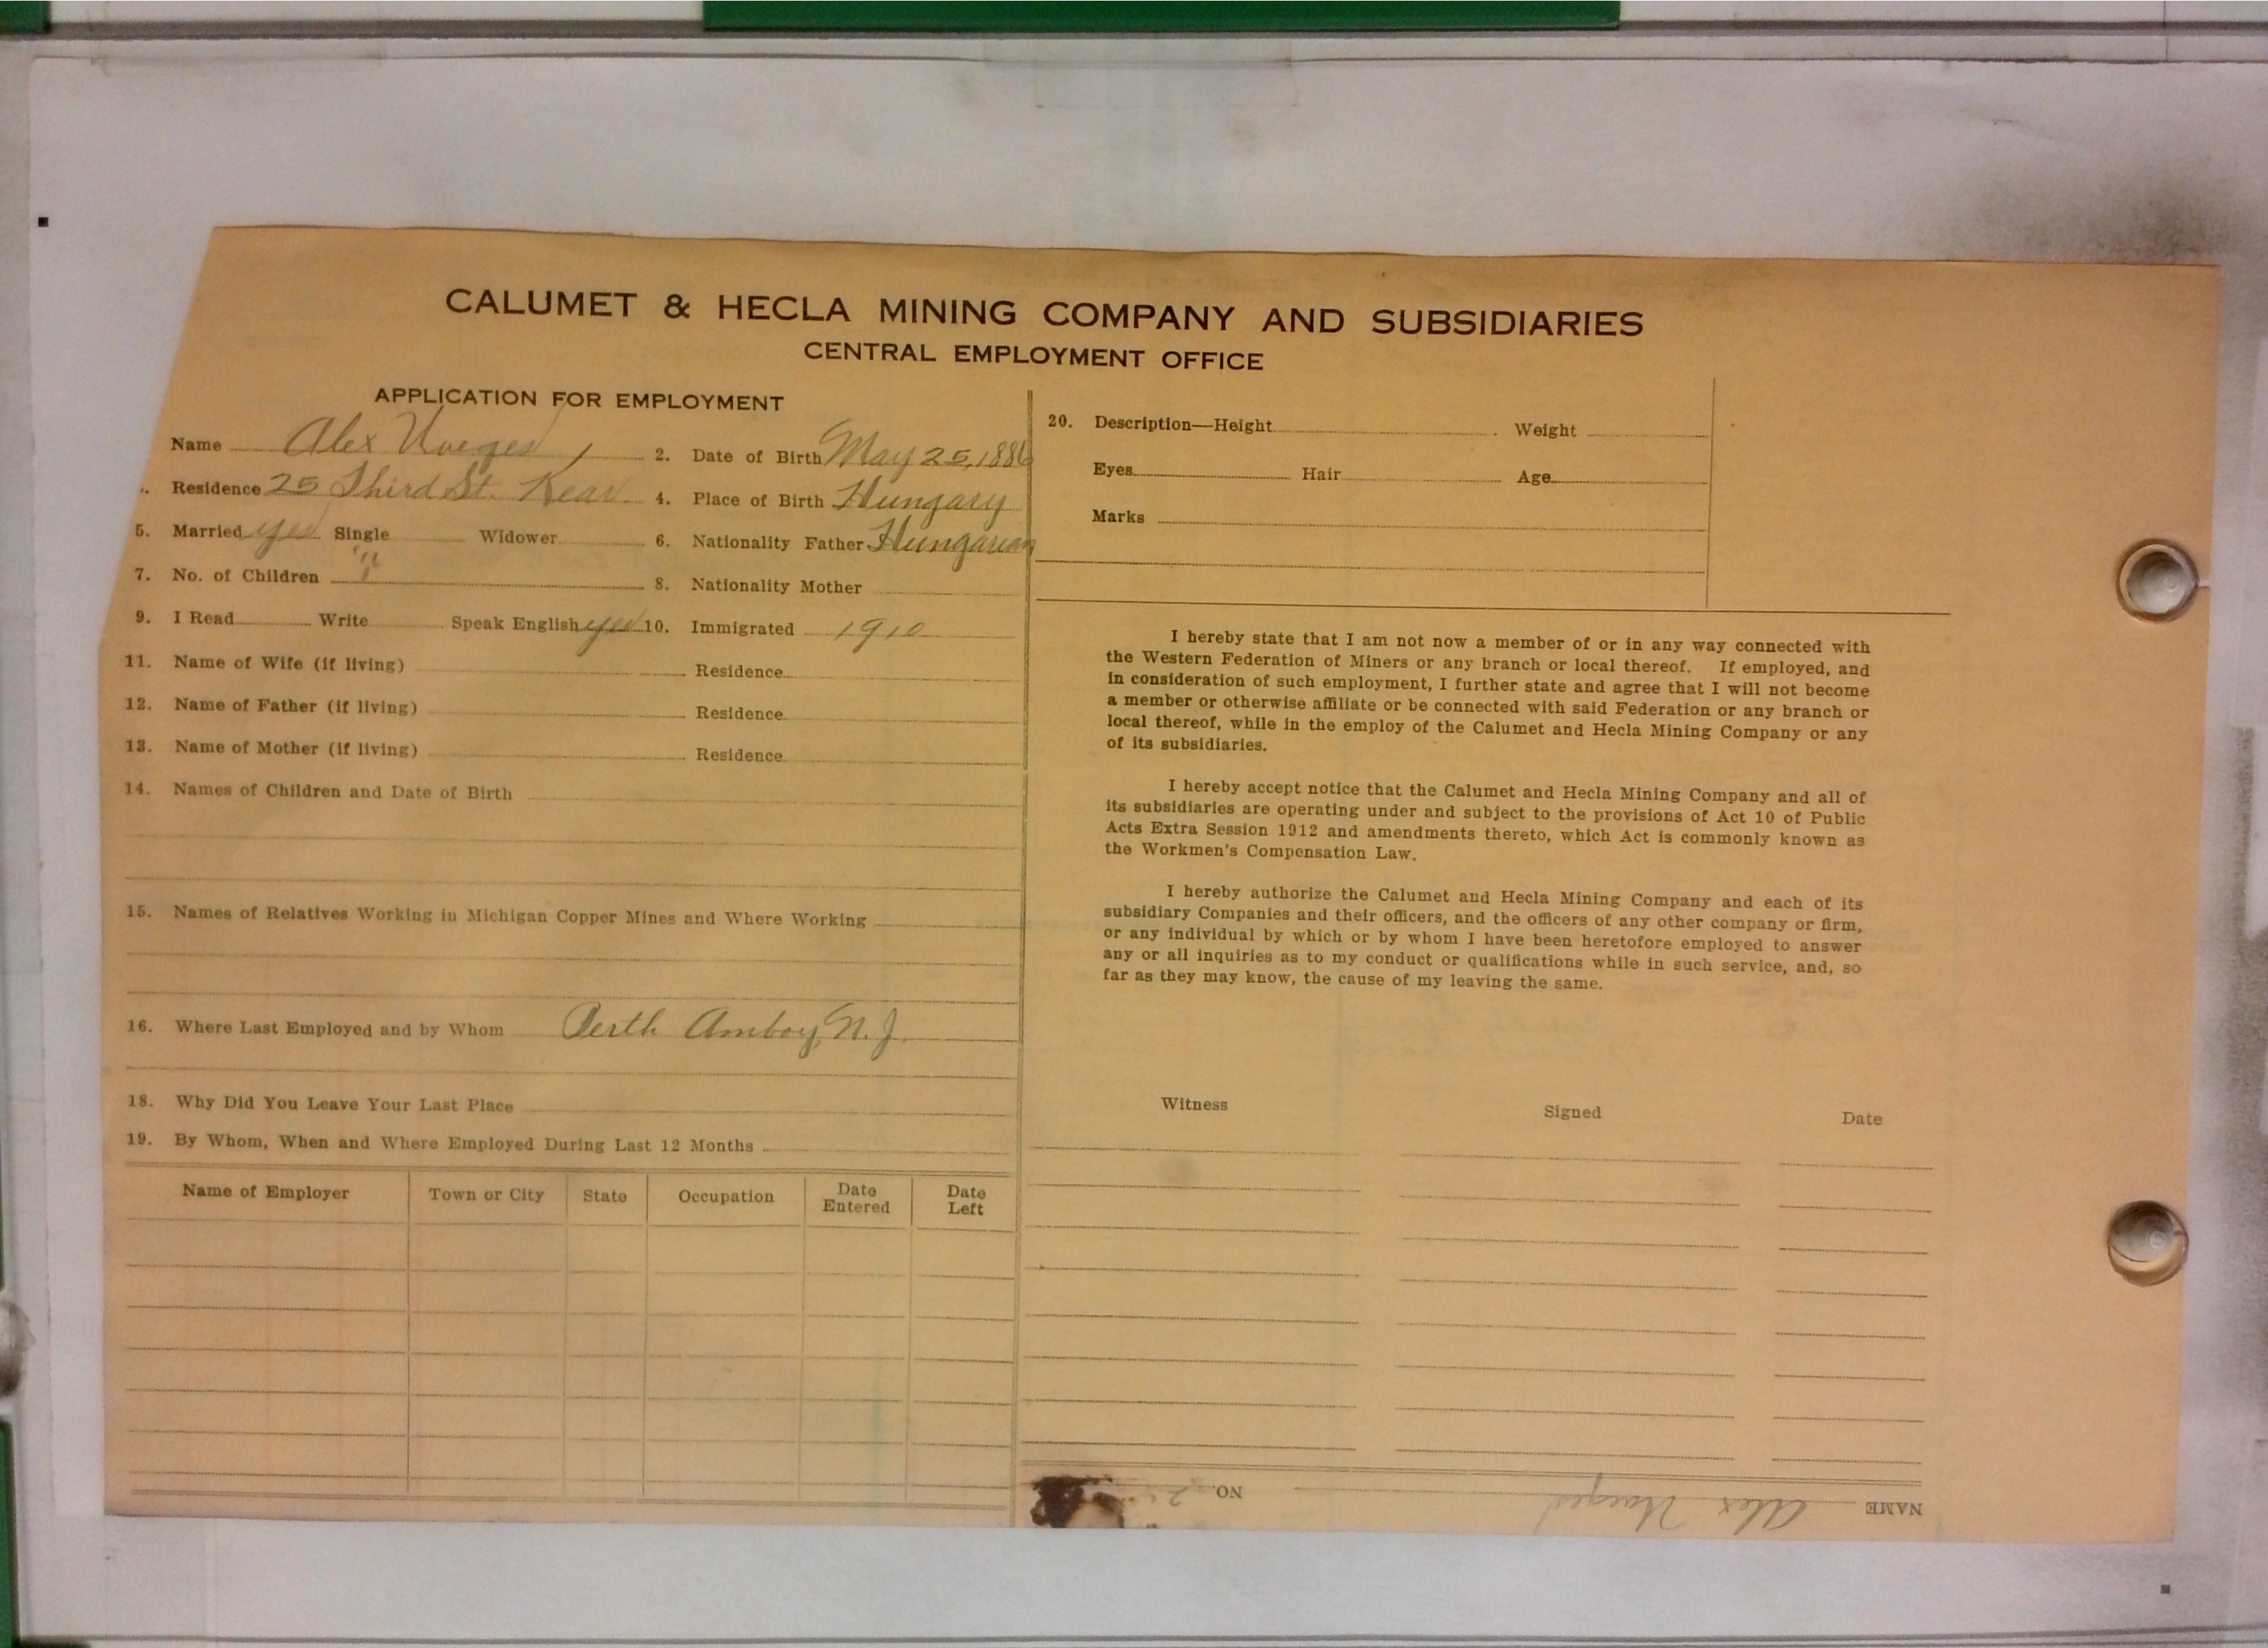 CALUMET & HECLA MINING COMPANY AND SUBSIDIARIES
CENTRAL EMPLOYMENT OFFICE
APPLICATION FOR EMPLOYMENT
Name Alex
2. Date of Birth May 25, 1886
Residence 25 Third St. Kear.
4. Place of Birth Hungary
5. Married yes Single Widower
6. Nationality Father Hungarian
7. No. of Children
8. Nationality Mother
9. I Read Write Speak English yes
10. Immigrated 1910
11. Name of Wife (if living) Residence
12. Name of Father (if living) Residence
13. Name of Mother (if living) Residence
14. Names of Children and Date of Birth
15. Names of Relatives Working in Michigan Copper Mines and Where Working
16. Where Last Employed and by Whom Perth Amboy, N. J.
18. Why Did You Leave Your Last Place
19. By Whom, When and Where Employed During Last 12 Months
Name of Employer Town or City State Occupation Date Entered Date Left
20. Description—Height Weight
Eyes Hair Age
Marks
I hereby state that I am not now a member of or in any way connected with
the Western Federation of Miners or any branch or local thereof. If employed, and
in consideration of such employment, I further state and agree that I will not become
a member or otherwise affiliate or be connected with said Federation or any branch or
local thereof, while in the employ of the Calumet and Hecla Mining Company or any
of its subsidiaries.
I hereby accept notice that the Calumet and Hecla Mining Company and all of
its subsidiaries are operating under and subject to the provisions of Act 10 of Public
Acts Extra Session 1912 and amendments thereto, which Act is commonly known as
the Workmen's Compensation Law.
I hereby authorize the Calumet and Hecla Mining Company and each of its
subsidiary Companies and their officers, and the officers of any other company or firm,
or any individual by which or by whom I have been heretofore employed to answer
any or all inquiries as to my conduct or qualifications while in such service, and, so
far as they may know, the cause of my leaving the same.
Witness Signed Date
NAME Alex NO.